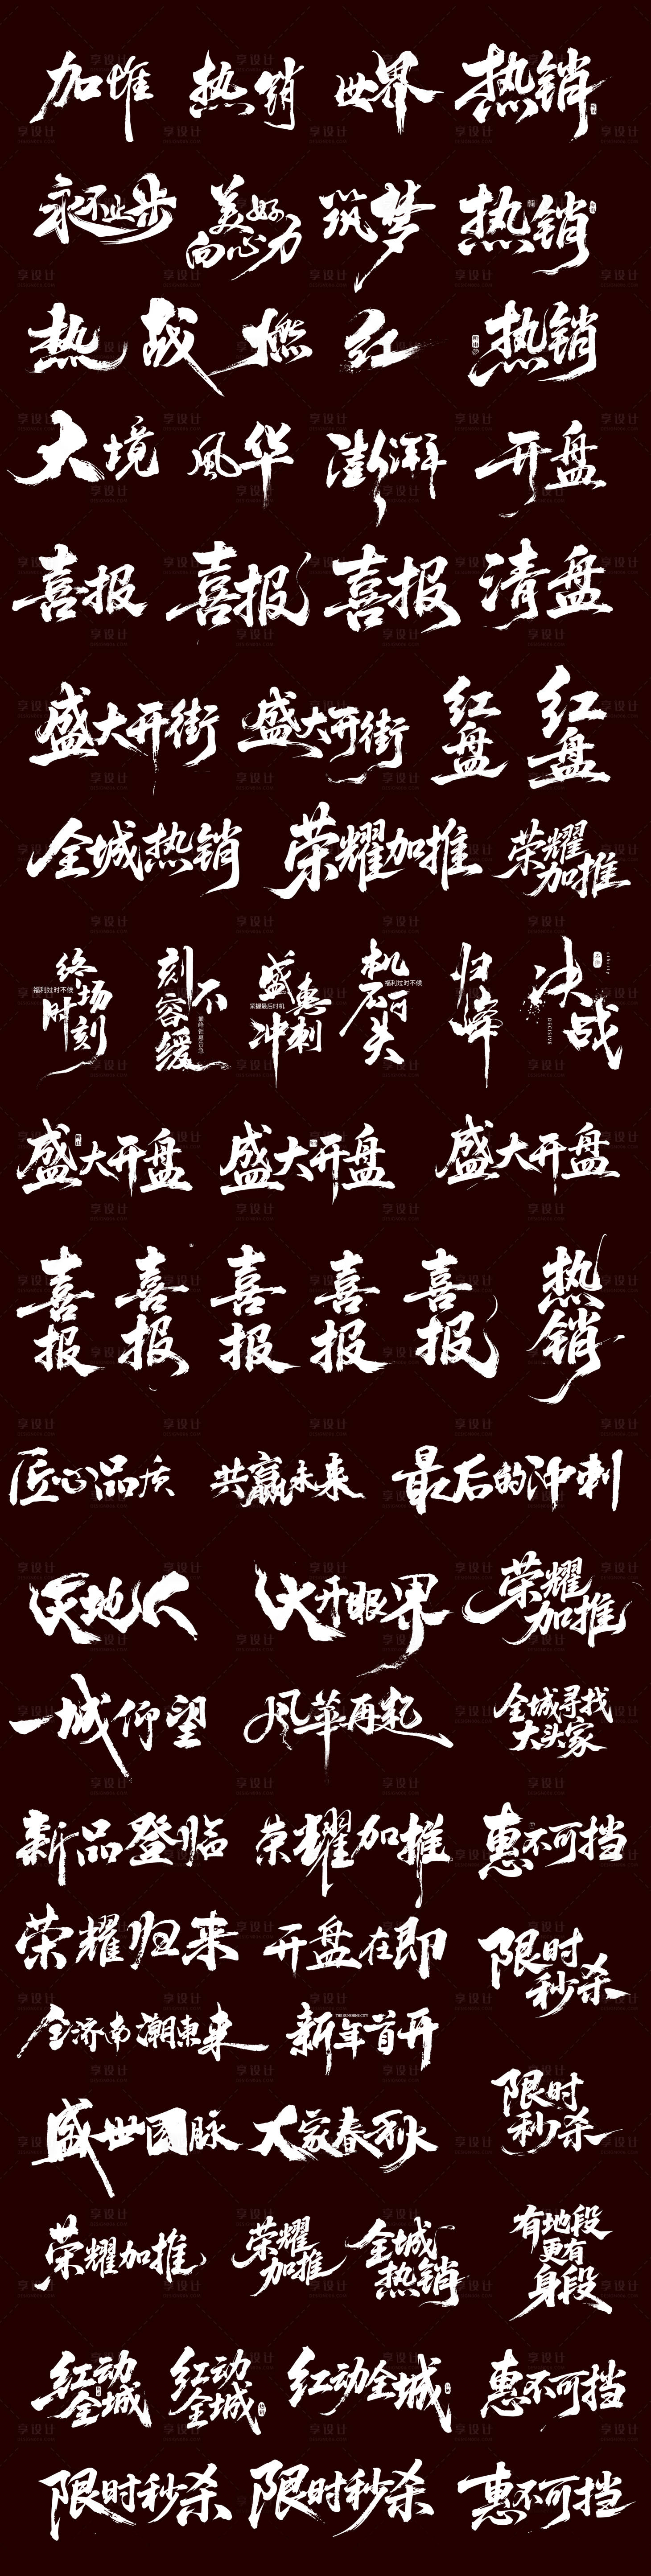 加推 热销 世界 热销
永不止步 美好向心力 筑梦 热销
热 战 燃 红 热销
大境 風华 澎湃 开盘
喜报 喜报 喜报 清盘
盛大开街 盛大开街 红盘 红盘
全城热销 荣耀加推 荣耀加推
终场时刻 福利过时不候 刻不容缓 盛惠冲刺 紧握最后时机 机不可失 福利过时不候 归峰 决战 DECISIVE
盛大开盘 盛大开盘 盛大开盘
喜报 喜报 喜报 喜报 喜报 热销
匠心品质 共赢未来 最后的冲刺
天地人 大开眼界 荣耀加推
一城仰望 风华再起 全城寻找大头家
新品登临 荣耀加推 惠不可挡
荣耀归来 开盘在即 限时秒杀
全济南 潮東来 新年首开
盛世国脉 大家春秋 限时秒杀
荣耀加推 荣耀加推 全城热销 有地段更有身段
红动全城 红动全城 红动全城 惠不可挡
限时秒杀 限时秒杀 惠不可挡
享设计